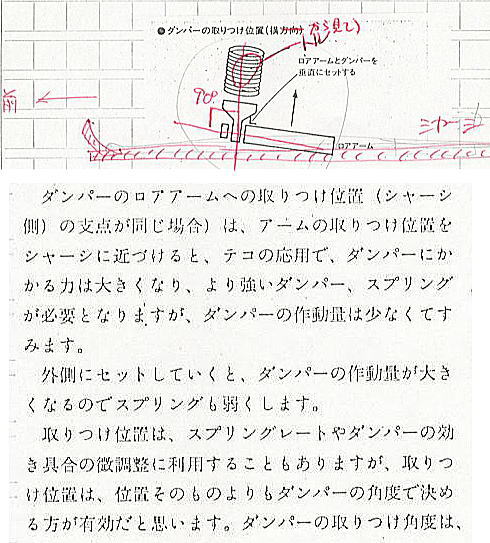 ●ダンパーの取りつけ位置（横方向）から見て）
ロアアームとダンパーを
垂直にセットする
90°
前
ロアアーム
シャーシ
ダンパーのロアアームへの取りつけ位置（シャーシ
側）の支点が同じ場合）は、アームの取りつけ位置を
シャーシに近づけると、テコの応用で、ダンパーにか
かる力は大きくなり、より強いダンパー、スプリング
が必要となりますが、ダンパーの作動量は少なくてす
みます。
外側にセットしていくと、ダンパーの作動量が大き
くなるのでスプリングも弱くします。
取りつけ位置は、スプリングレートやダンパーの効
き具合の微調整に利用することもありますが、取りつ
け位置は、位置そのものよりもダンパーの角度で決め
る方が有効だと思います。ダンパーの取りつけ角度は、